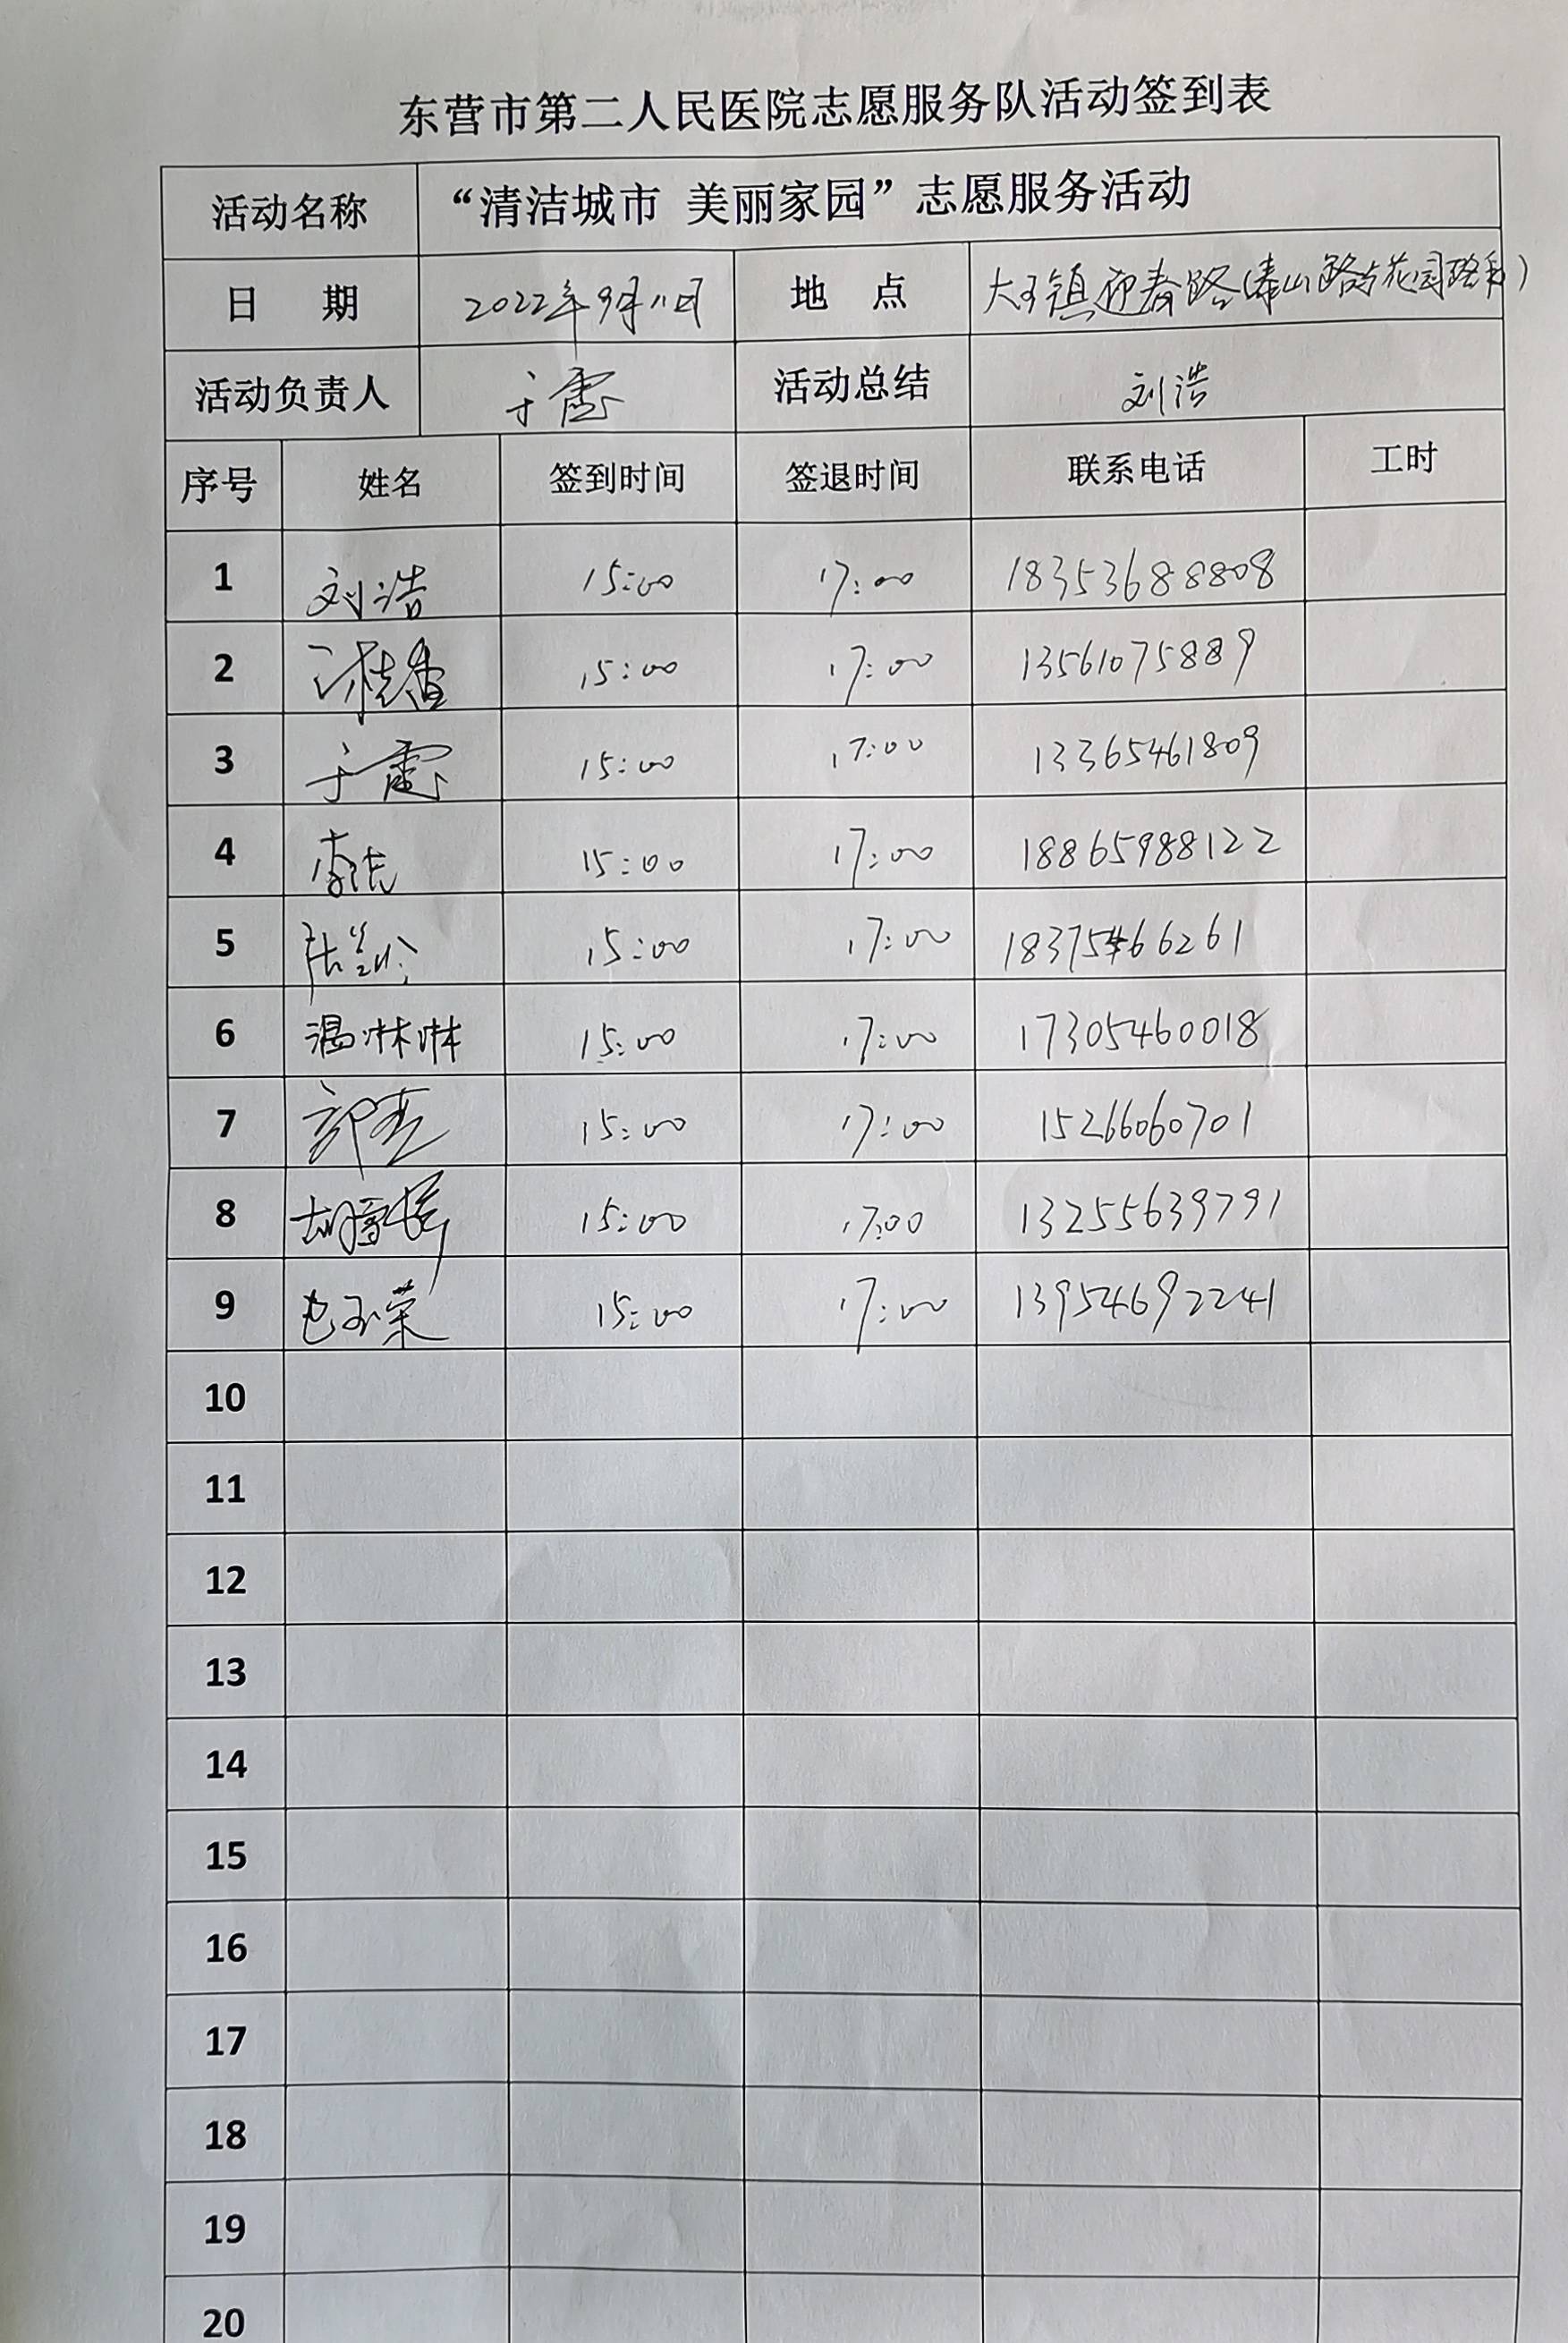 东营市第二人民医院志愿服务队活动签到表
活动名称 “清洁城市 美丽家园”志愿服务活动
日 期 2022年9月11日 地 点 大王镇迎春路(泰山路与花园路)
活动负责人 于霞 活动总结 刘浩
序号 姓名 签到时间 签退时间 联系电话 工时
1 刘浩 15:00 17:00 18353688808
2 15:00 17:00 13561075889
3 于霞 15:00 17:00 13365461809
4 15:00 17:00 18865988122
5 15:00 17:00 18375466261
6 温淋淋 15:00 17:00 17305460018
7 15:00 17:00 15266060701
8 15:00 17:00 13255639791
9 15:00 17:00 13954692241
10
11
12
13
14
15
16
17
18
19
20